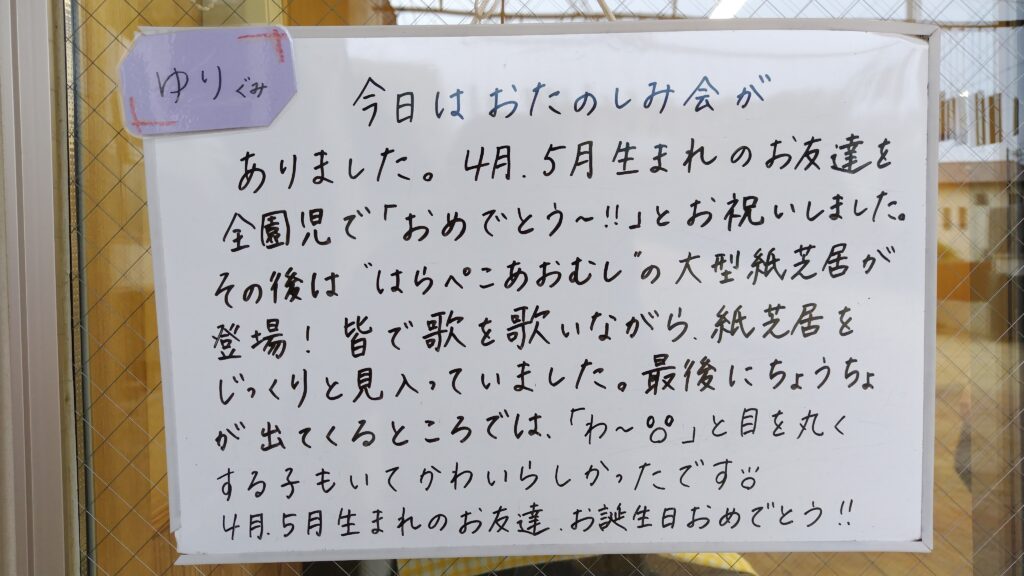 ゆりぐみ
今日はおたのしみ会が
ありました。4月、5月生まれのお友達を
全園児で「おめでとう〜!!」とお祝いしました。
その後は“はらぺこあおむし”の大型紙芝居が
登場！皆で歌を歌いながら、紙芝居を
じっくりと見入っていました。最後にちょうちょ
が出てくるところでは、「わ〜」と目を丸く
する子もいてかわいらしかったです
4月、5月生まれのお友達、お誕生日おめでとう!!